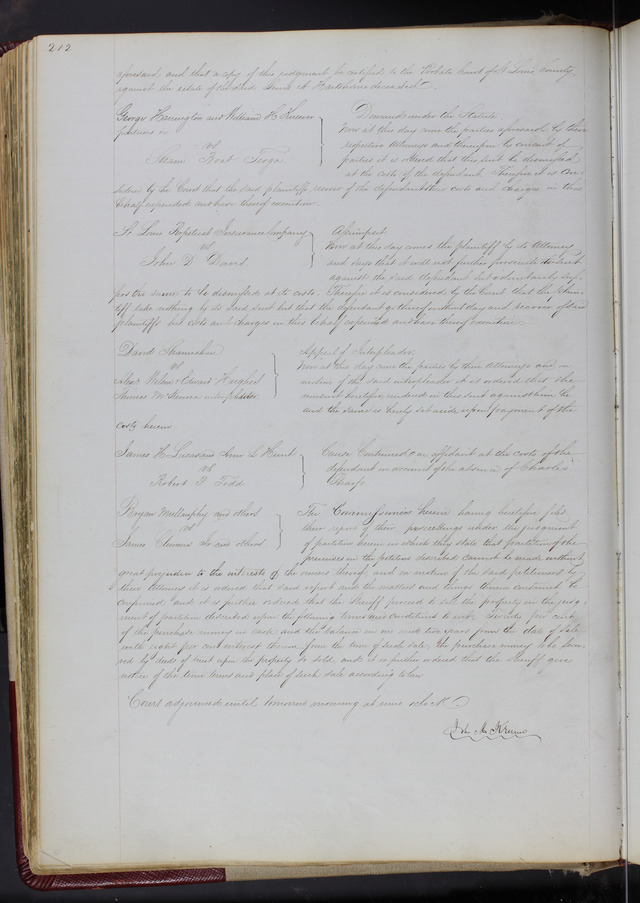 212
aforesaid and that a copy of this judgment be certified to the Probate Court of St Louis County
against the estate of the said deceased
George Herrington and William H
partners &c
vs
Steam Boat Tioga
Demand under the Statute
Now at this day come the parties aforesaid by their
respective Attorneys and thereupon by consent of
parties it is ordered that this suit be dismissed
at the cost of the defendant. Therefore it is con-
sidered by the Court that the said plaintiffs recover of the defendant their costs and charges in this
behalf expended and have thereof execution.
St Louis Perpetual Insurance Company
vs
John D. Davis
Assumpsit
Now at this day comes the plaintiff by its Attorney
and says that it will not further prosecute its suit
against the said defendant but voluntarily suf-
fers the same to be dismissed at its costs. Therefore it is considered by the Court that the plain-
tiff take nothing by its said suit but that the defendant go thereof without day and recover of said
plaintiffs his costs and charges in this behalf expended and have thereof execution.
David
vs
Edward
interpleader
Appeal & Interpleader
Now at this day come the parties by their Attorneys and on
motion of the said interpleader it is ordered that the
heretofore rendered in this suit against him be
and the same is hereby set aside upon payment of the
costs herein.
James H. Lucas and Ann L Hunt
vs
Robert P. Todd
Cause Continued on affidavit at the costs of the
defendant on account of the absence of Charles
Bryan Mullanphy and others
vs
James Clemens Jr and others
The Commissioners herein having heretofore filed
their report of their proceedings under the judgment
of partition herein in which they state that partition of the
premises in the petition described cannot be made without
great prejudice to the interests of the owners thereof, and on motion of the said petitioners by
their Attorney it is ordered that said report and the matters and things therein contained be
confirmed, and it is further ordered that the Sheriff proceed to sell the property in the judg-
ment of partition described upon the following terms and conditions to wit: Twenty per cent
of the purchase money in cash and the balance in one and two years from the date of sale
with eight per cent interest thereon from the time of such sale, the purchase money to be secu-
red by deeds of trust upon the property so sold, and it is further ordered that the Sheriff give
notice of the time terms and place of such sale according to law.
Court adjourned until tomorrow morning at nine o'clock.
John M. Krum